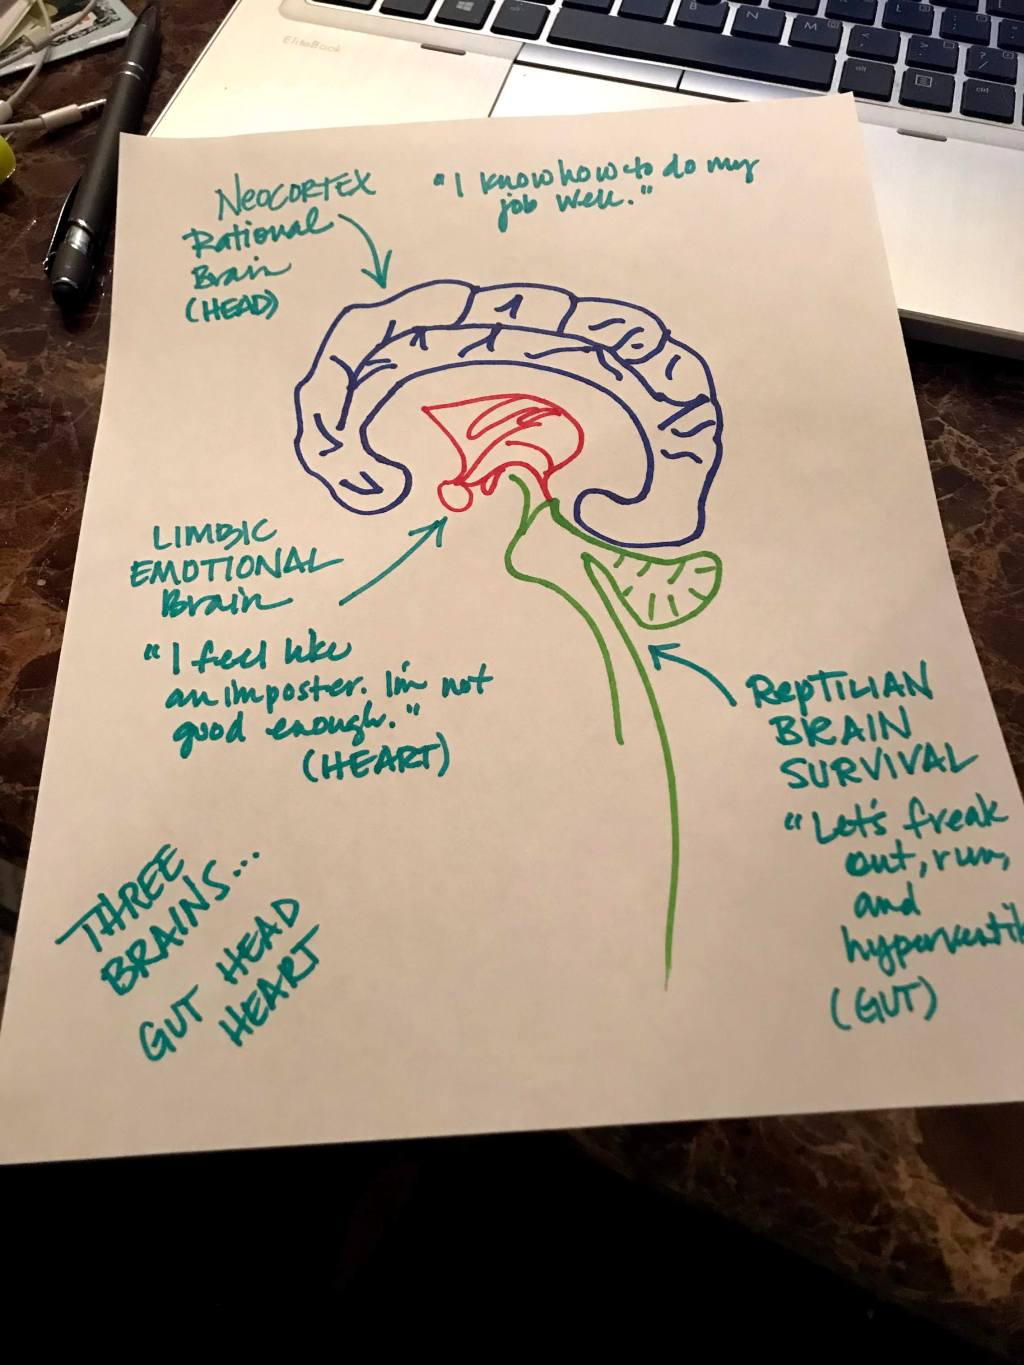 EliteBook
NEOCORTEX
Rational
Brain
(HEAD)
"I know how to do my
job well."
LIMBIC
EMOTIONAL
Brain
"I feel like
an imposter. I'm not
good enough."
(HEART)
REPTILIAN
BRAIN
SURVIVAL
"Let's freak
out, run,
and
(GUT)
THREE
BRAINS...
GUT HEAD
HEART
B
N
M
L
alt
ctrl